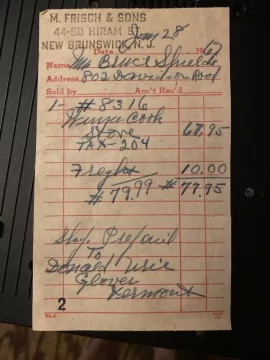 M. FRISCH & SONS
44-50 HIRAM ST
NEW BRUNSWICK, N.J.
Date Jan 28 19
Name Mr Bruce Shields
Address 802 Davidson Road
Sold by Am't Rec'd
1 - # 8316
Cook
Stove 67.95
TAX - 204
Freght 10.00
# 79.99 # 77.95
Ship Prepaid
To
Donald Urie
Glover
Vermont
2